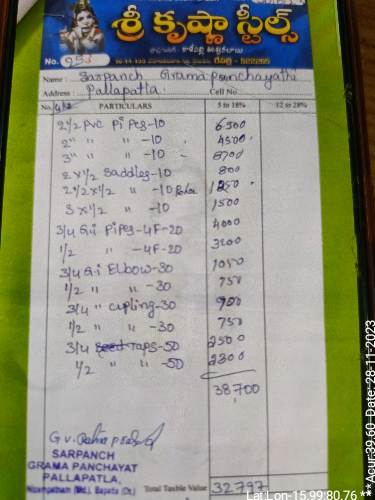 శ్రీ కృష్ణా స్టీల్స్
No. 253
Name : Sarpanch Grama panchayathi
Address : Pallapatla Cell No.
No. PARTICULARS 5 to 18% 12 to 28%
2 1/2 PVC Pipes-10 6500
2" " " -10 4500
3" " " -10 8700
2 x 1/2 Saddles-10 800
2 1/2 x 1/2 " -10 1250
3 x 1/2 " -10 1500
3/4 G.I Pipes-4F-20 4000
1/2 " -4F-20 3200
3/4 G.I Elbow-30 1050
1/2 " " -30 750
3/4 " Cupling-30 900
1/2 " " -30 750
3/4 Taps-50 2500
1/2 " " -50 2300
38700
SARPANCH
GRAMA PANCHAYAT
PALLAPATLA,
Nizampatnam (Md.), Bapatla (Dt.)
Total Taxble Value 32797
Lat Lon-15.99:80.76 *** Acur:39.60-Date: 28-11-2023